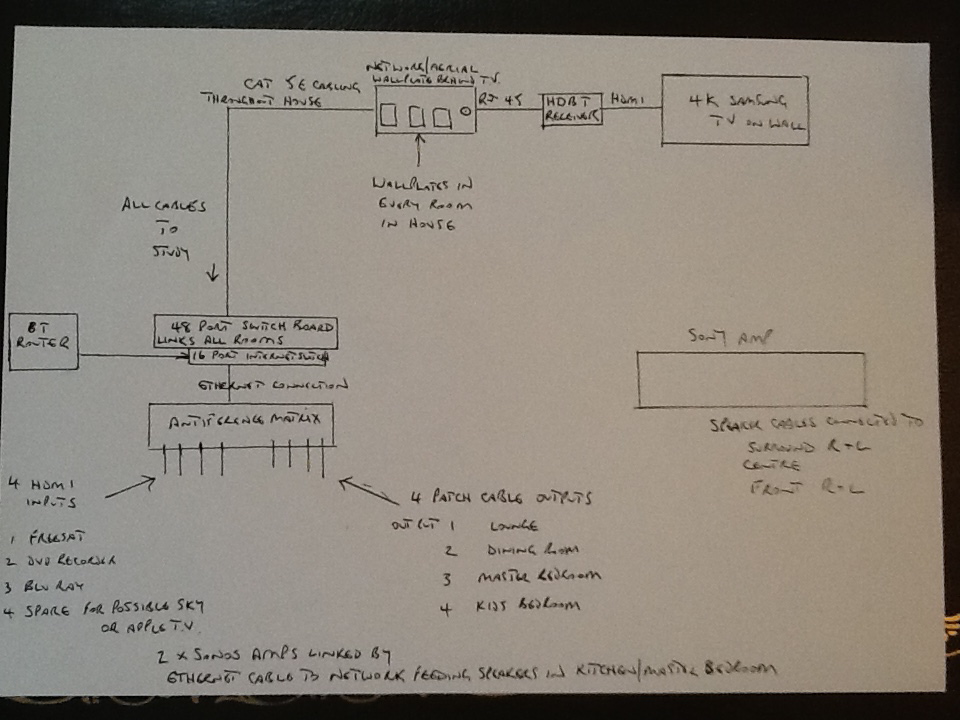 NETWORK/AERIAL
WALLPLATE BEHIND T.V.
CAT 5E CABLING
THROUGHOUT HOUSE
RJ 45
HDBT
RECEIVER
HDMI
4K SAMSUNG
TV ON WALL
WALLPLATES IN
EVERY ROOM
IN HOUSE
ALL CABLES
TO
STUDY
BT
ROUTER
48 PORT SWITCH BOARD
LINKS ALL ROOMS
16 PORT INTERNET SWITCH
ETHERNET CONNECTION
ANTIFERENCE MATRIX
SONY AMP
SPEAKER CABLES CONNECTED TO
SURROUND R+L
CENTRE
FRONT R+L
4 HDMI
INPUTS
1 FREESAT
2 DVD RECORDER
3 BLU RAY
4 SPARE FOR POSSIBLE SKY
OR APPLE T.V.
4 PATCH CABLE OUTPUTS
OUTPUT 1 LOUNGE
2 DINING ROOM
3 MASTER BEDROOM
4 KIDS BEDROOM
2 x SONOS AMPS LINKED BY
ETHERNET CABLE TO NETWORK FEEDING SPEAKERS IN KITCHEN/MASTER BEDROOM